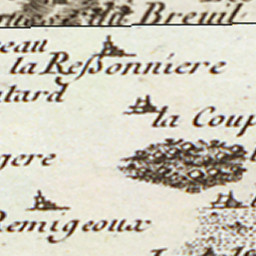 du Breuil
eau
la Ressonniere
tard
la Coup
gere
Remigeoux